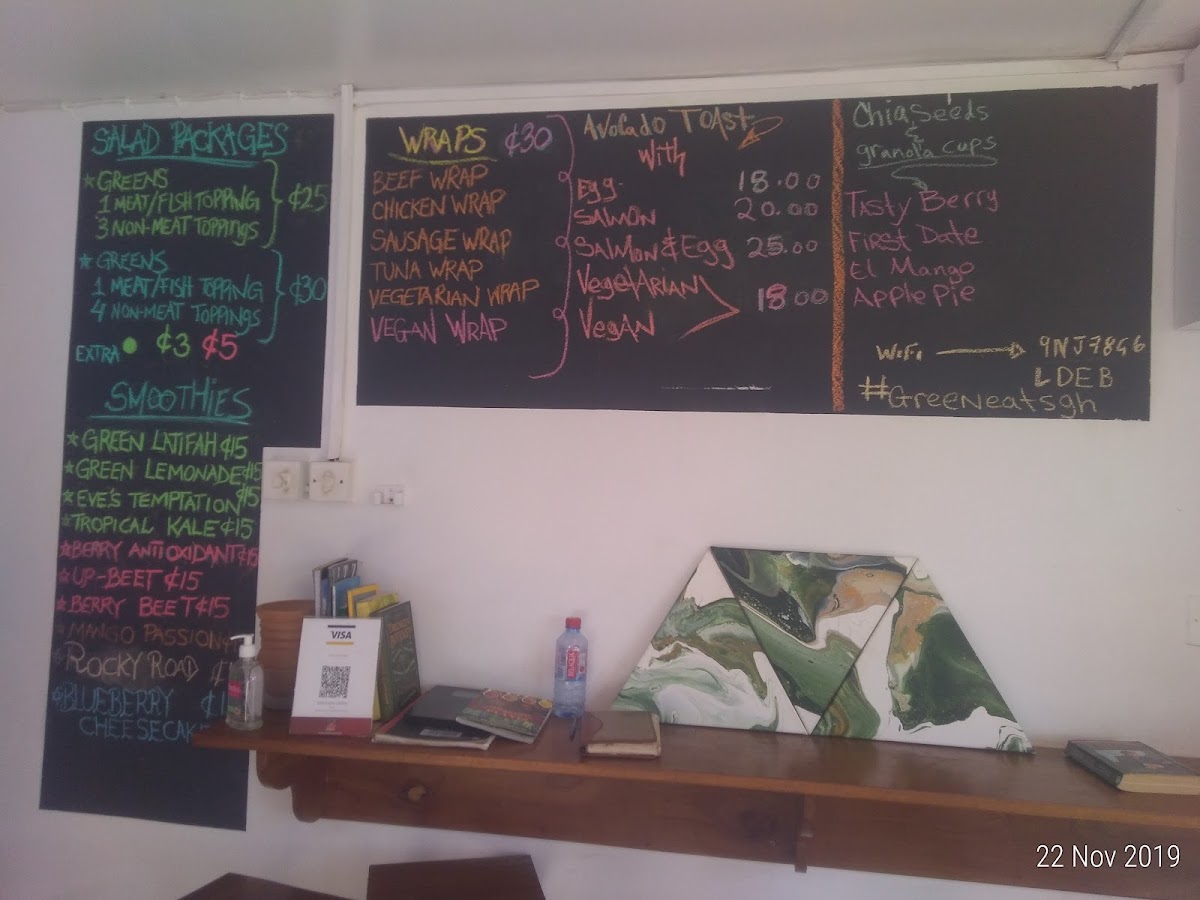 SALAD PACKAGES
GREENS
1 MEAT/FISH TOPPING
3 NON-MEAT TOPPINGS
₵25
GREENS
1 MEAT/FISH TOPPING
4 NON-MEAT TOPPINGS
₵30
EXTRA ₵3 ₵5
SMOOTHIES
GREEN LATIFAH ₵15
GREEN LEMONADE ₵15
EVE'S TEMPTATION ₵15
TROPICAL KALE ₵15
BERRY ANTIOXIDANT ₵15
UP-BEET ₵15
BERRY BEET ₵15
MANGO PASSION
ROCKY ROAD
BLUEBERRY
WRAPS ₵30
BEEF WRAP
CHICKEN WRAP
SAUSAGE WRAP
TUNA WRAP
VEGETARIAN WRAP
VEGAN WRAP
Avocado TOAST
With
Egg 18.00
SALMON 20.00
SALMON & Egg 25.00
VegetARIAN
VegAN
18.00
Chia Seeds
&
granola cups
Tasty Berry
First Date
El Mango
Apple Pie
WiFi 9NJ78G6
LDEB
#GreeNeatsgh
VISA
22 Nov 2019